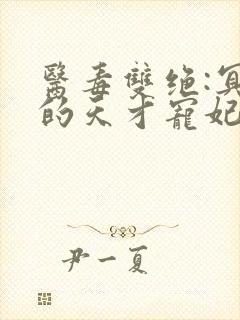 醫毒雙绝:冥
的天才寵妃
尹一夏